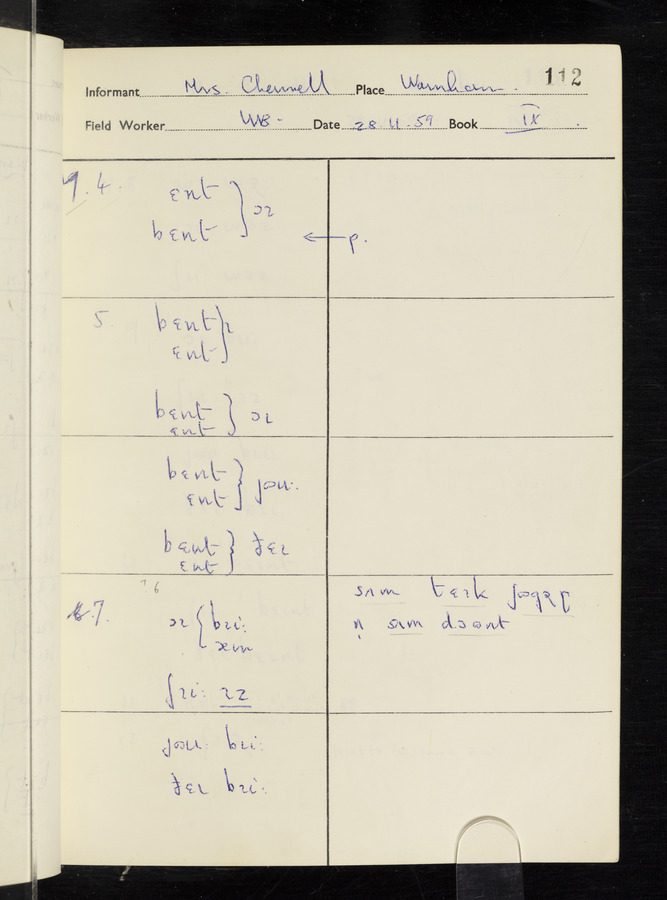 112
Informant Mrs. Chennell Place Warnham.
Field Worker WB- Date 28.11.59 Book IX.
9.4. ɛnt
bɛnt } ɔɪ
← p.
5. bɛnt
ɛnt } ɪ
bɛnt
ɛnt } ɔɪ
bɛnt
ɛnt } jəu:
bɛnt
ɛnt } ðɛɪ
7 6
7. ɔɪ { bɪi:
æm
sʌm tɛɪk
n̩ sʌm dɔənt
ʃɪi: ɪz
jəu: bɪi:
ðɛɪ bɪi: